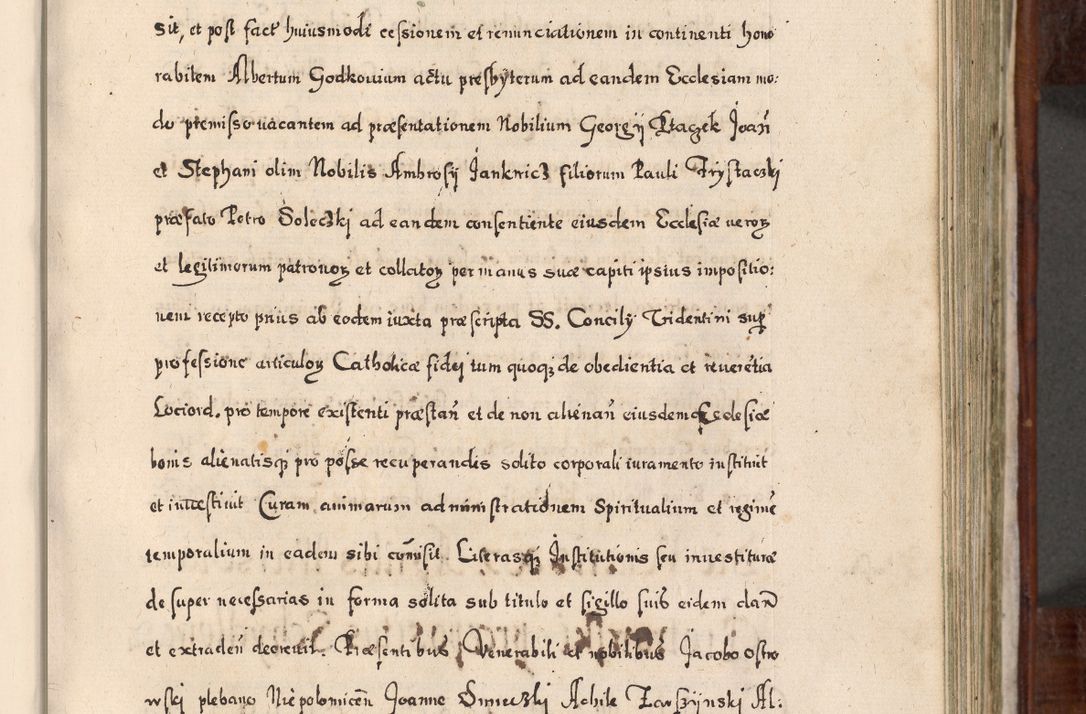 sit, et post fact huiusmodi cessionem et renunciationem in continenti hono
rabilem Albertum Godkouium actu presbyterum ad eandem Ecclesiam mo:
do premisso uacantem ad præsentationem Nobilium Georgij Ptaczek Joan̄
et Stephani olim Nobilis Ambrosij Jankwicz filiorum Pauli Trystaczkj
præfato Petro Soleczkj ad eandem consentiente eiusdem Ecclesiæ veroꝝ
et legitimorum patronoꝝ et collatoꝝ per manus suæ capiti ipsius impositio:
nem recepto prius ab eodem iuxta præscripta SS. Concilij Tridentini sup̄
professione articuloꝝ Catholicæ fidej tum quoqꝫ de obedientia et reuerētia
Lociord. pro tempore existenti præstan̄ et de non alienan̄ eiusdem Ecclesiæ
bonis alienatisqꝫ pro posse recuperandis solito corporali iuramento instituit
et inuestiuit Curam animarum administrationem Spiritualium et regimē
temporalium in eadem sibi com̄isit. Literasqꝫ Institutionis seu inuestituræ
desuper necessarias in forma solita sub titulo et sigillo suis eidem dan̄
et extraden̄ decreuit. Præsentibus Venerabili et nobilibus Jacobo Ostro
wskj plebano Niepolomicen̄ Joanne Achile Al: